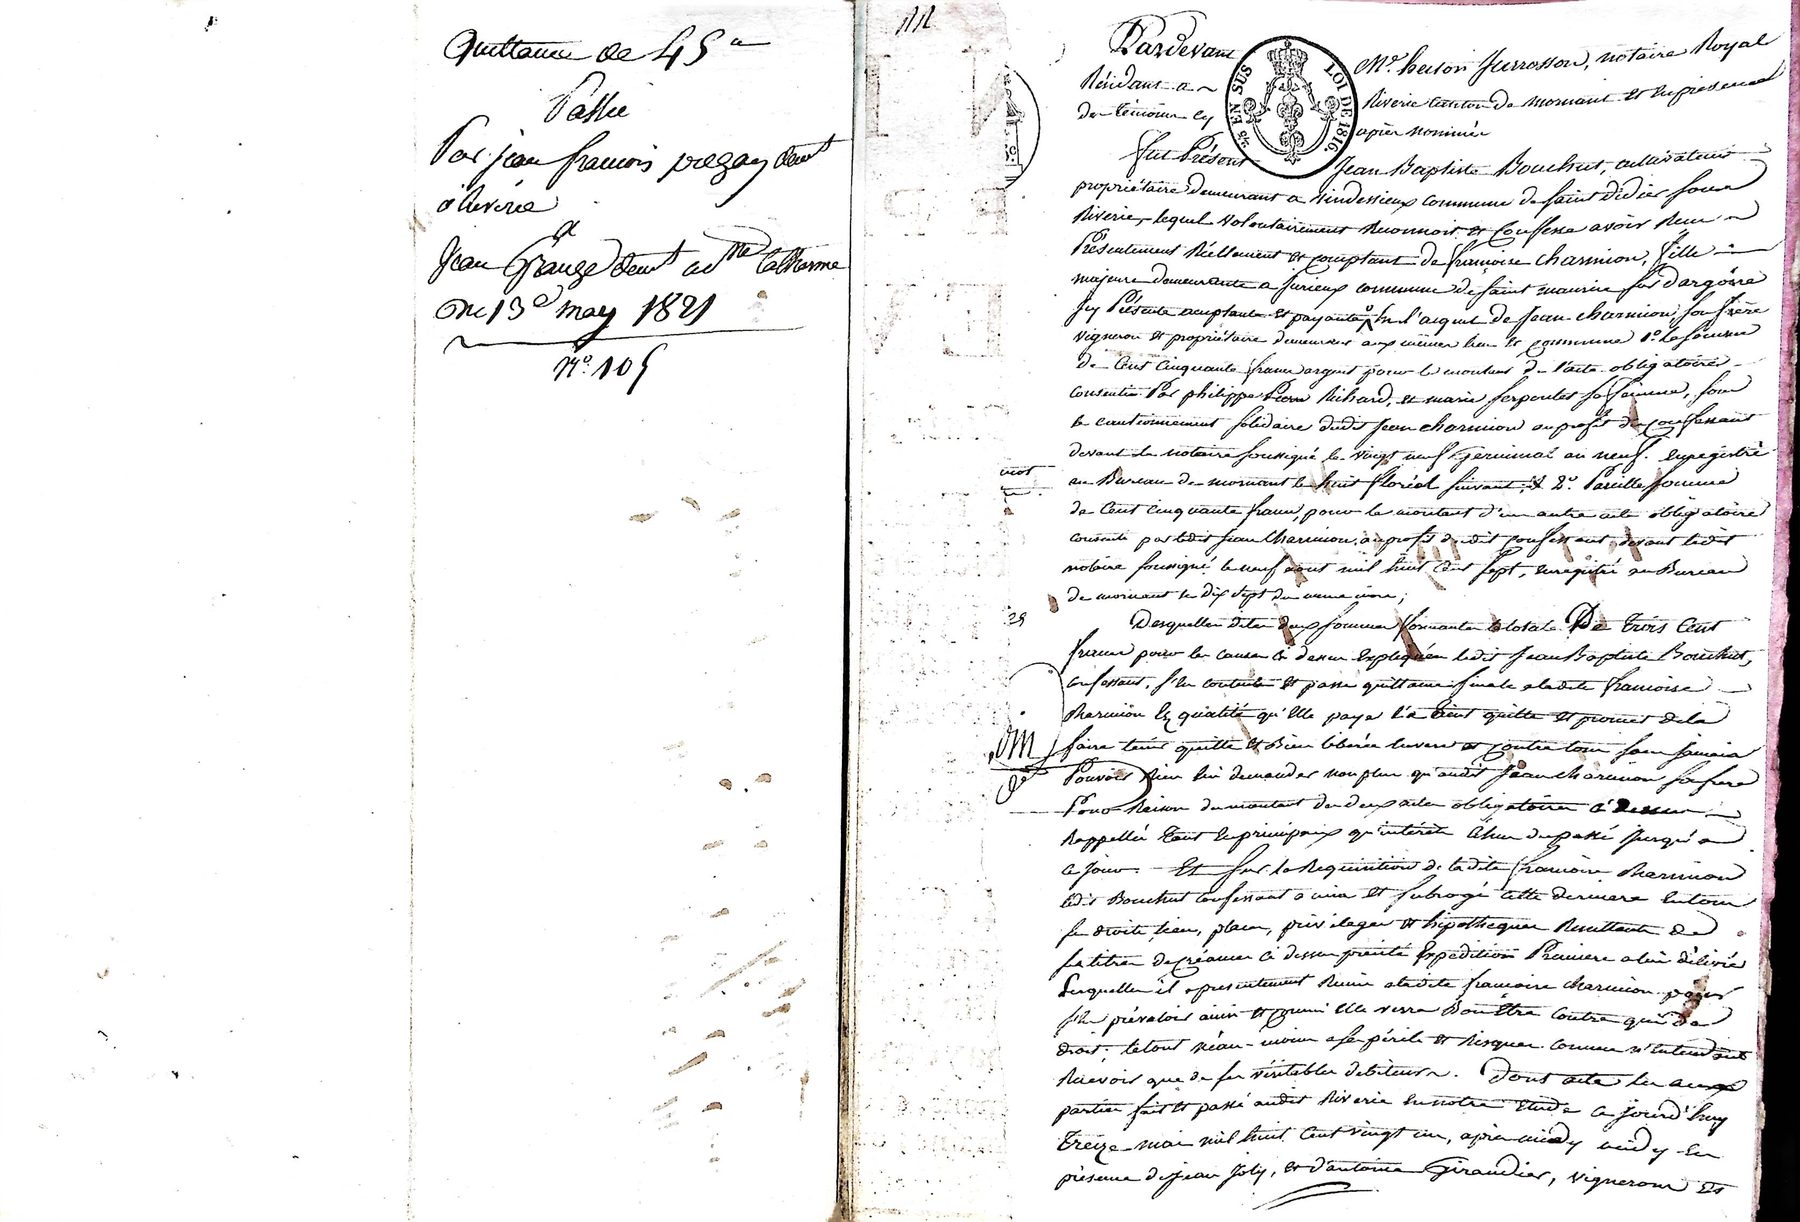 Quittance de 45
Passée
Par jean francois
à Riverie
a
Jean Grange demt a Ste Catherine
Du 13e may 1821
N° 105
Pardevant Me notaire Royal
Résidant a Riverie canton de mornant et en presence
de témoins cy après nommés
EN SUS
LOI DE 1816.
fut Présent Jean Baptiste Bouchut, cultivateur
propriétaire demeurant a commune de Saint Didier sous
Riverie, lequel volontairement Reconnoit et Confesse avoir Recu
Présentement Réellement et comptant de françoise Charmion, fille
majeure demeurante a commune de Saint maurice sur Dargoire
Icy Présente acceptante et payante En l'acquit de Jean Charmion son frère
vigneron et propriétaire demeurer aux mêmes lieu et Commune 1° la Somme
de Cent Cinquante francs argent pour le montant de l'acte obligatoire
consentie Par philippe Pierre Richard, et marie sa femme, sous
le cautionnement solidaire dudit Jean Charmion au profit du Confessant
devant le notaire soussigné le vingt neuf Germinal an neuf. Enregistré
au Bureau de mornant le huit floréal suivant, et 2° Pareille somme
de Cent cinquante francs, pour le montant d'un autre acte obligatoire
consenti par ledit Jean Charmion, au profit dudit Confessant devant ledit
notaire soussigné le neuf aout mil huit cent sept, enregistré au Bureau
de mornant le dix sept du même mois,
Desquelles dites deux sommes formantes le total De Trois Cent
francs pour les causes ci dessus Expliquées ledit Jean Baptiste Bouchut,
confessant, s'en contente et passe quittance finale a ladite francoise
Charmion En qualité qu'Elle paye l'a tient quitte et promet de la
faire tenir quitte et Bien libérée Envers et contre tous sans Jamais
Pouvoir Rien lui demander non plus qu'audit Jean Charmion son frere
Pour Raison du montant des deux actes obligatoires ci dessus
Rappellés tant En principaux qu'intérêts du passé Jusqu'a
ce jour. Et sur la Requisition de ladite francoise Charmion
ledit Bouchut confessant a mis et subrogé cette derniere En tous
ses droits, lieu, place, privileges et hipotheques Resultants de
ses titres de créances ci dessus Expedition Premiere a lui délivré
Lesquelles il a présentement Remis a ladite francoise Charmion pour
s'En prévaloir ainsi et comme Elle verra Bon Etre Contre qui De
droit; le tout néan-moins a ses périls et Risques comme n'Entendant
Recevoir que de ses véritables débiteurs. Dont acte lu aux
parties fait et passé audit Riverie En notre Etude ce jourd'huy
Treize mai mil huit Cent vingt un, après midy En
présence de Jean Joly, et d'antoine Giraudier, vignerons Et